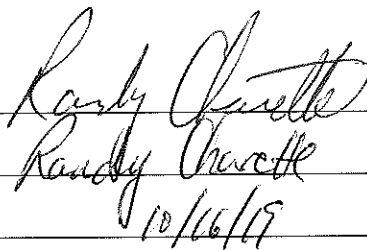 Randy Charette
Randy Charette
10/16/19